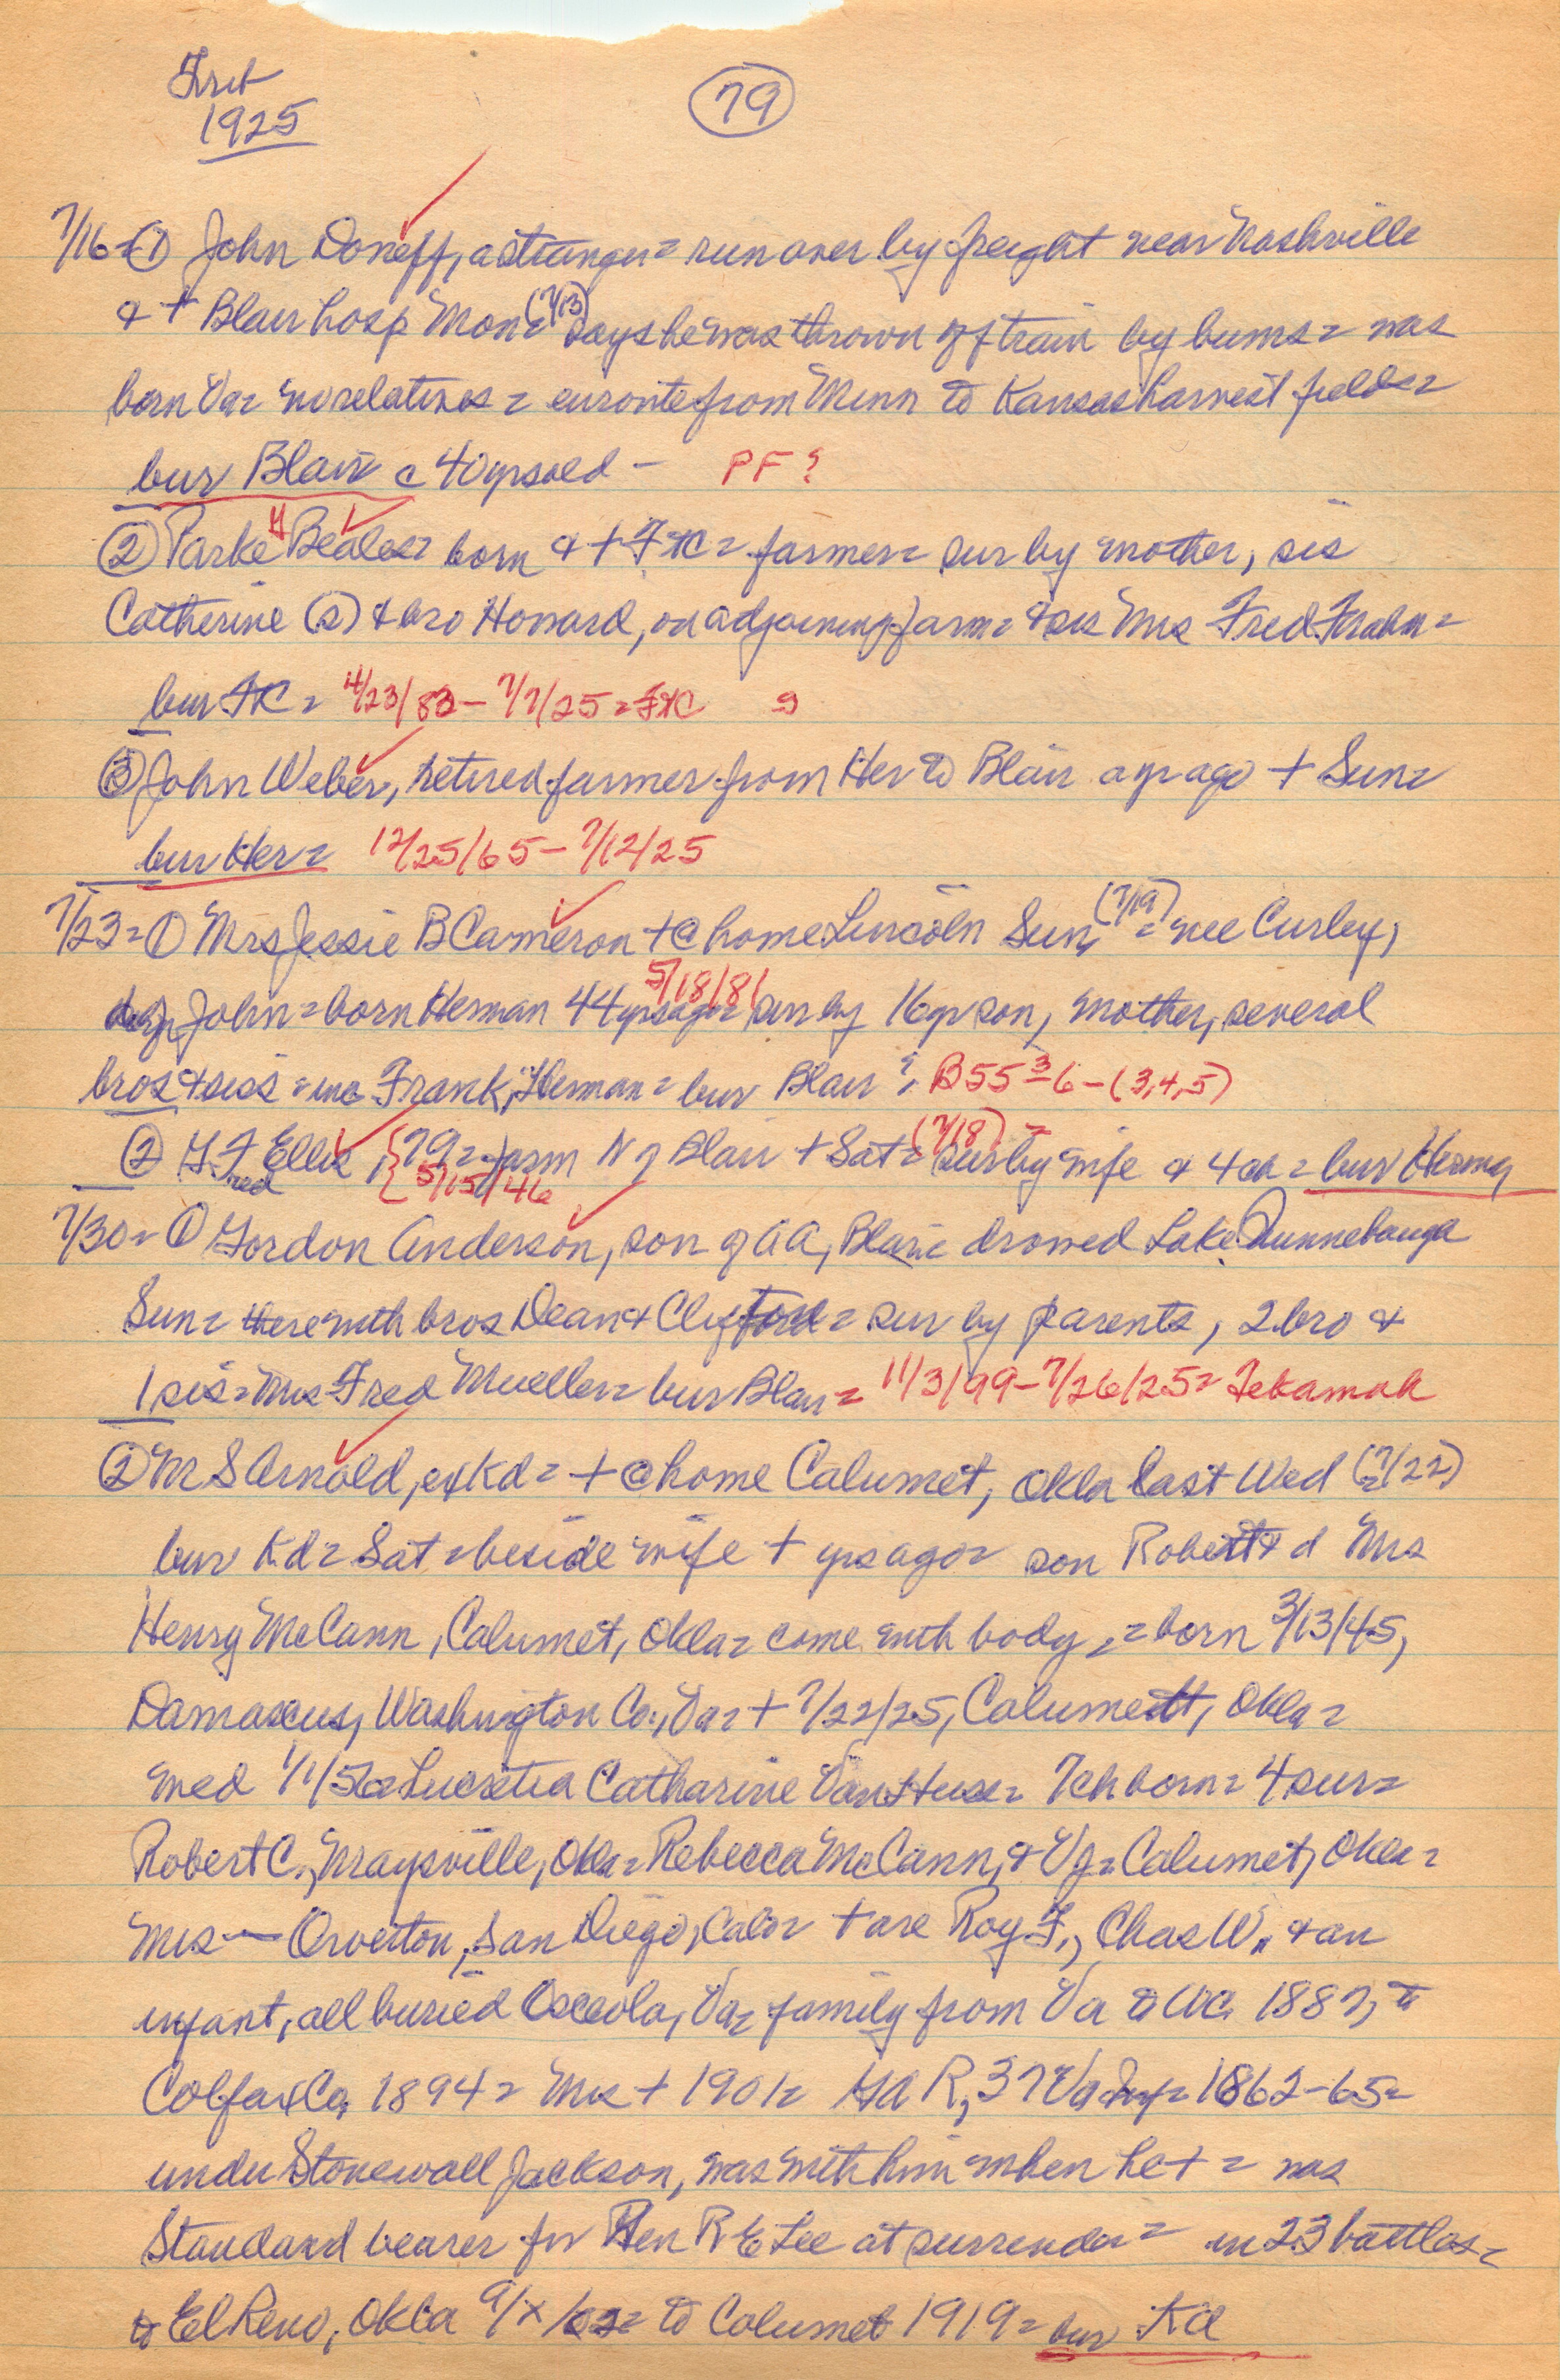 1925
79
7/16 = ① John Doneff, a stranger = run over by freight near Nashville
& + Blair hosp Mon = (7/13) says he was thrown off train by bums = was
born Va = no relatives = enroute from Minn to Kansas harvest fields =
bur Blair c 40 yrs old — PF?
② Parke H Beales = born & + Ft C = farmer = sur by mother, sis
Catherine (s) & bro Howard, on adjoining farm = & sis Mrs Fred =
bur Ft C = 11/23/83 – 7/7/25 = Ft C
③ John Weber, retired farmer from Her to Blair a yr ago + Sun =
bur Her = 12/25/65 – 7/12/25
7/23 = ① Mrs Jessie B Cameron + @ home Lincoln Sun, (7/19) = nee Curley,
John = born Herman 44 yrs ago = 5/18/81 sur by 16 yr son, mother, several
bros & siss = inc Frank, Herman = bur Blair ?, B55 = 3 6 – (3,4,5)
② G F Ellis, red { 79 = farm N of Blair + Sat = (7/18) = sur by wife & 4 ch = bur Herman
{ 5/15/46
7/30 = ① Gordon Anderson, son of A A, Blair drowned Lake Quinnebauga
Sun = there with bros Dean & Clifford = sur by parents, 2 bro &
1 sis = Mrs Fred Mueller = bur Blair = 11/3/99 – 7/26/25 = Tekamah
② M S Arnold, ex Kd = + @ home Calumet, Okla last Wed (7/22)
bur Kd = Sat = beside wife + yrs ago = son Robert & d Mrs
Henry McCann, Calumet, Okla = come with body, = born 3/13/45,
Damascus, Washington Co., Va = + 7/22/25, Calumet, Okla =
med 1/1/ Lucretia Catharine Van Huse = 7 ch born = 4 sur =
Robert C., Maysville, Okla = Rebecca McCann, & = Calumet, Okla =
Mrs — Overton, San Diego, Cal = + are Roy F., Chas W., & an
infant, all buried Osceola, Va = family from Va to WC 1887, to
Colfax Co, 1894 = Mrs + 1901 = G A R, 37 Va Inf = 1862–65 =
under Stonewall Jackson, was with him when he + = was
Standard bearer for Gen R E Lee at surrender = in 23 battles =
to El Reno, Okla 9/x/ = to Calumet 1919 = bur Kd